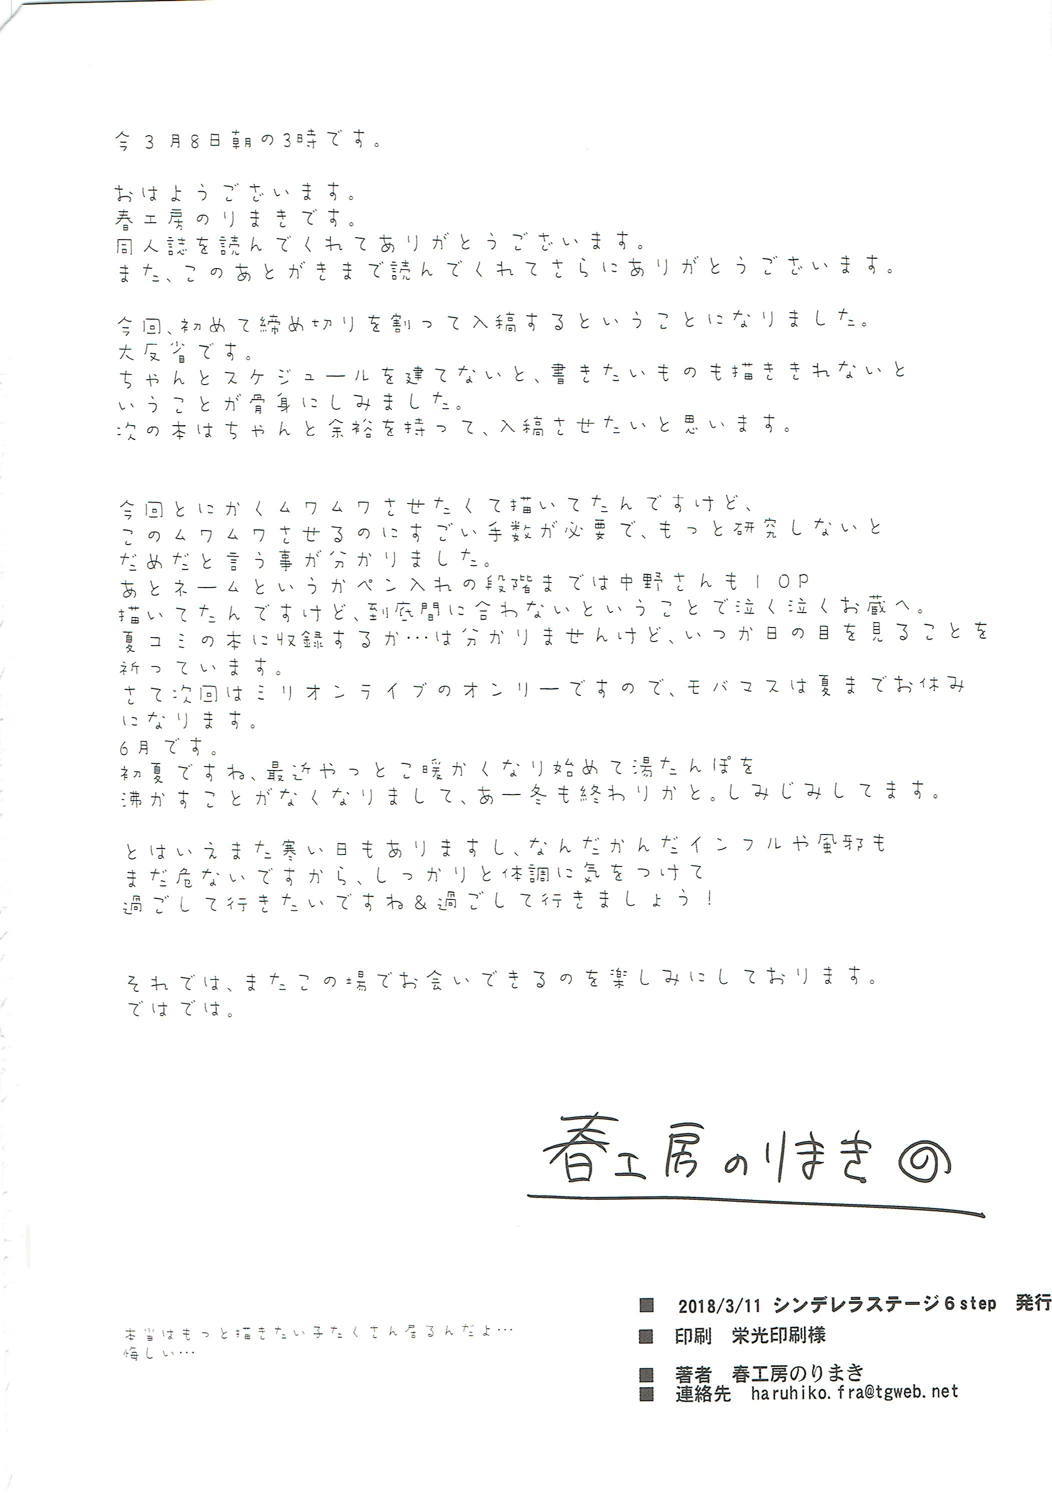 今3月8日朝の3時です。
おはようございます。
春工房のりまきです。
同人誌を読んでくれてありがとうございます。
また、このあとがきまで読んでくれてさらにありがとうございます。
今回、初めて締め切りを割って入稿するということになりました。
大反省です。
ちゃんとスケジュールを建てないと、書きたいものも描ききれないと
いうことが骨身にしみました。
次の本はちゃんと余裕を持って、入稿させたいと思います。
今回とにかくムワムワさせたくて描いてたんですけど、
このムワムワさせるのにすごい手数が必要で、もっと研究しないと
だめだと言う事が分かりました。
あとネームというかペン入れの段階までは中野さんも10P
描いてたんですけど、到底間に合わないということで泣く泣くお蔵へ。
夏コミの本に収録するか…は分かりませんけど、いつか日の目を見ることを
祈っています。
さて次回はミリオンライブのオンリーですので、モバマスは夏までお休み
になります。
6月です。
初夏ですね、最近やっとこ暖かくなり始めて湯たんぽを
沸かすことがなくなりまして、あー冬も終わりかと。しみじみしてます。
とはいえまた寒い日もありますし、なんだかんだインフルや風邪も
まだ危ないですから、しっかりと体調に気をつけて
過ごして行きたいですね&過ごして行きましょう!
それでは、またこの場でお会いできるのを楽しみにしております。
ではでは。
春工房のりまき の
本当はもっと描きたい子たくさん居るんだよ…
悔しい…
■ 2018/3/11 シンデレラステージ6step 発行
■ 印刷 栄光印刷様
■ 著者 春工房のりまき
■ 連絡先 haruhiko.fra@tgweb.net